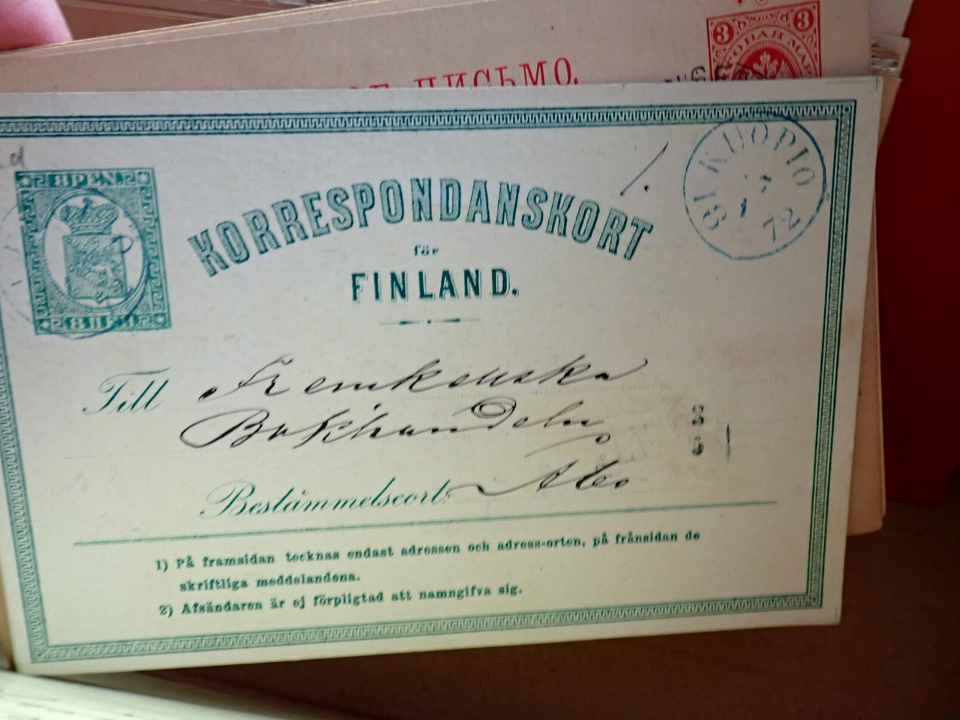 ПИСЬМО.
3
3
8 PEN.
KORRESPONDANSKORT
för
FINLAND.
1.
KUOPIO
18 72
Till Frenckellska
Bokhandeln
3
5
Bestämmelseort: Åbo
1) På framsidan tecknas endast adressen och adress-orten, på frånsidan de
skriftliga meddelandena.
2) Afsändaren är ej förpligtad att namngifva sig.